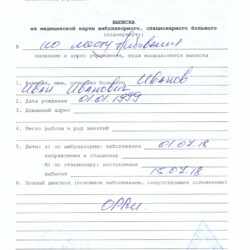 ВЫПИСКА
из медицинской карты амбулаторного, стационарного больного
(подчеркнуть)
В по месту требования
название и адрес учреждения, куда направляется выписка
1. Фамилия, имя, отчество больного Иванов
Иван Иванович
2. Дата рождения 01.01.1999
3. Домашний адрес
4. Место работы и род занятий
5. Даты: а) по амбулатории: заболевания 01.07.18
направления в стационар
б) по стационару: поступления
выбытия 15.07.18
6. Полный диагноз (основное заболевание, сопутствующее осложнение)
ОРВИ.